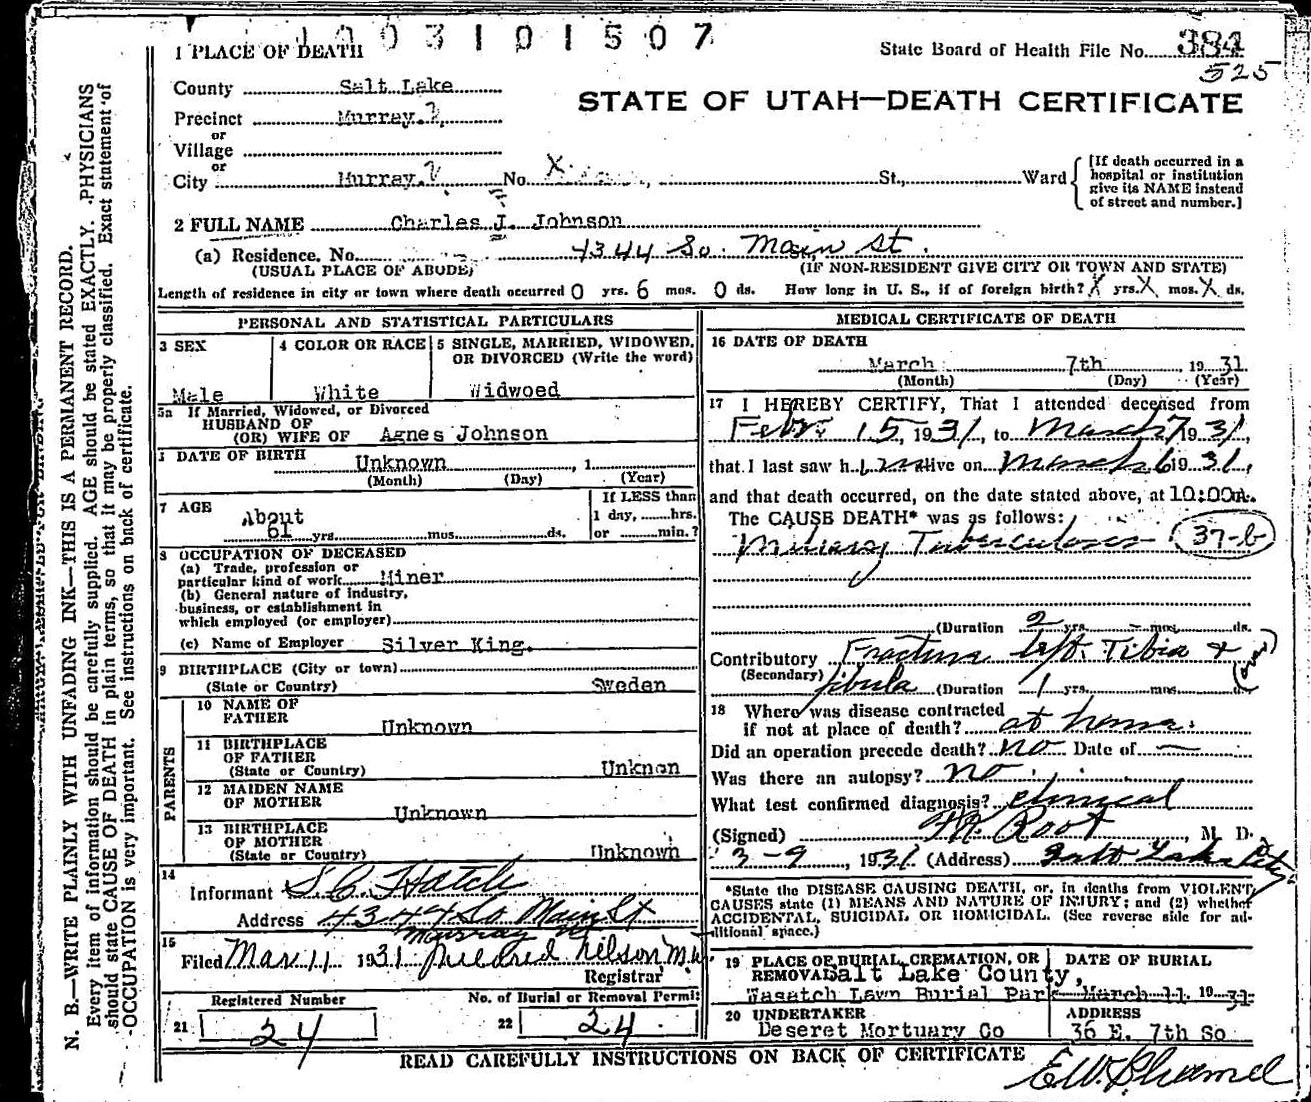 1003101507
1 PLACE OF DEATH
State Board of Health File No. 384
525
County Salt Lake
STATE OF UTAH—DEATH CERTIFICATE
Precinct Murray.?
or
Village
or
City Murray.? No. X St., Ward
[If death occurred in a
hospital or institution
give its NAME instead
of street and number.]
2 FULL NAME Charles J. Johnson
(a) Residence. No. 4344 So. Main St.
(USUAL PLACE OF ABODE) (IF NON-RESIDENT GIVE CITY OR TOWN AND STATE)
Length of residence in city or town where death occurred 0 yrs. 6 mos. 0 ds. How long in U. S., if of foreign birth? X yrs. X mos. X ds.
PERSONAL AND STATISTICAL PARTICULARS
3 SEX
Male
4 COLOR OR RACE
White
5 SINGLE, MARRIED, WIDOWED,
OR DIVORCED (Write the word)
Widwoed
5a If Married, Widowed, or Divorced
HUSBAND OF
(OR) WIFE OF Agnes Johnson
DATE OF BIRTH Unknown , 1
(Month) (Day) (Year)
7 AGE
About
61 yrs. mos. ds.
If LESS than
1 day, hrs.
or min.?
8 OCCUPATION OF DECEASED
(a) Trade, profession or
particular kind of work Miner
(b) General nature of industry,
business, or establishment in
which employed (or employer)
(c) Name of Employer Silver King.
9 BIRTHPLACE (City or town)
(State or Country) Sweden
PARENTS
10 NAME OF
FATHER Unknown
11 BIRTHPLACE
OF FATHER
(State or Country) Unknon
12 MAIDEN NAME
OF MOTHER Unknown
13 BIRTHPLACE
OF MOTHER
(State or Country) Unknown
14
Informant S. C. Hatch
Address 4344 So Main St
Murray
15
Filed Mar 11 1931 Mildred Nelson
Registrar
Registered Number
21 24
No. of Burial or Removal Permit
22 24
MEDICAL CERTIFICATE OF DEATH
16 DATE OF DEATH
March 7th , 19 31
(Month) (Day) (Year)
17 I HEREBY CERTIFY, That I attended deceased from
Febr. 15, 1931, to March 7 1931,
that I last saw him alive on March 6 1931,
and that death occurred, on the date stated above, at 10:00A.
The CAUSE DEATH* was as follows:
Miliary Tuberculosis 37-b
(Duration 2 yrs. — mos. ds.
Contributory Fracture left Tibia &
(Secondary) fibula (Duration 1 yrs. mos. ds.
18 Where was disease contracted
if not at place of death? at home.
Did an operation precede death? no Date of —
Was there an autopsy? no
What test confirmed diagnosis? clinical
(Signed) Root , M. D.
3-9, 1931 (Address) Salt Lake City
*State the DISEASE CAUSING DEATH, or, in deaths from VIOLENT
CAUSES state (1) MEANS AND NATURE OF INJURY; and (2) whether
ACCIDENTAL, SUICIDAL OR HOMICIDAL. (See reverse side for ad-
ditional space.)
19 PLACE OF BURIAL, CREMATION, OR
REMOVAL Salt Lake County,
Wasatch Lawn Burial Park
DATE OF BURIAL
March 11 19 31
20 UNDERTAKER
Deseret Mortuary Co
ADDRESS
36 E. 7th So
READ CAREFULLY INSTRUCTIONS ON BACK OF CERTIFICATE
N. B.—WRITE PLAINLY WITH UNFADING INK—THIS IS A PERMANENT RECORD.
Every item of information should be carefully supplied. AGE should be stated EXACTLY. PHYSICIANS
should state CAUSE OF DEATH in plain terms, so that it may be properly classified. Exact statement of
OCCUPATION is very important. See instructions on back of certificate.